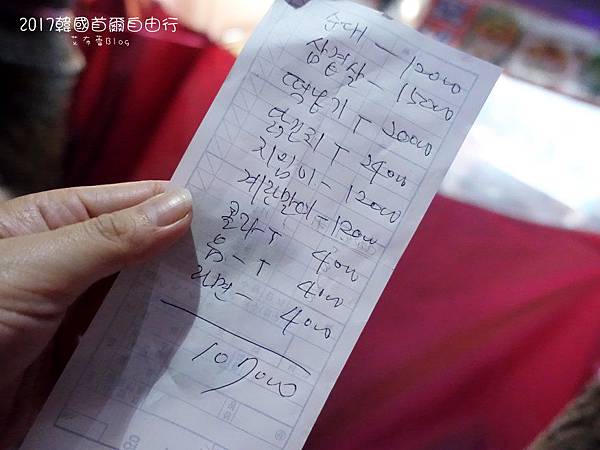 2017韓國首爾自由行
Blog
순대 - 12000
삼겹살 - 15000
떡볶기 T 20000
닭꼬치 T 24000
지짐이 - 12000
계란말이 - 12000
콜라 - T 4000
물 - T 4000
라면 - 4000
107000